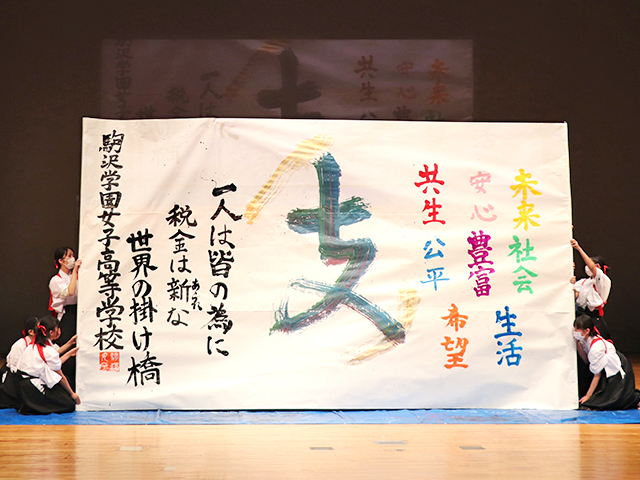 未来 社会 生活
安心 豊富
共生 公平 希望
支
一人は皆の為に
税金は新な
世界の掛け橋
駒沢学園女子高等学校